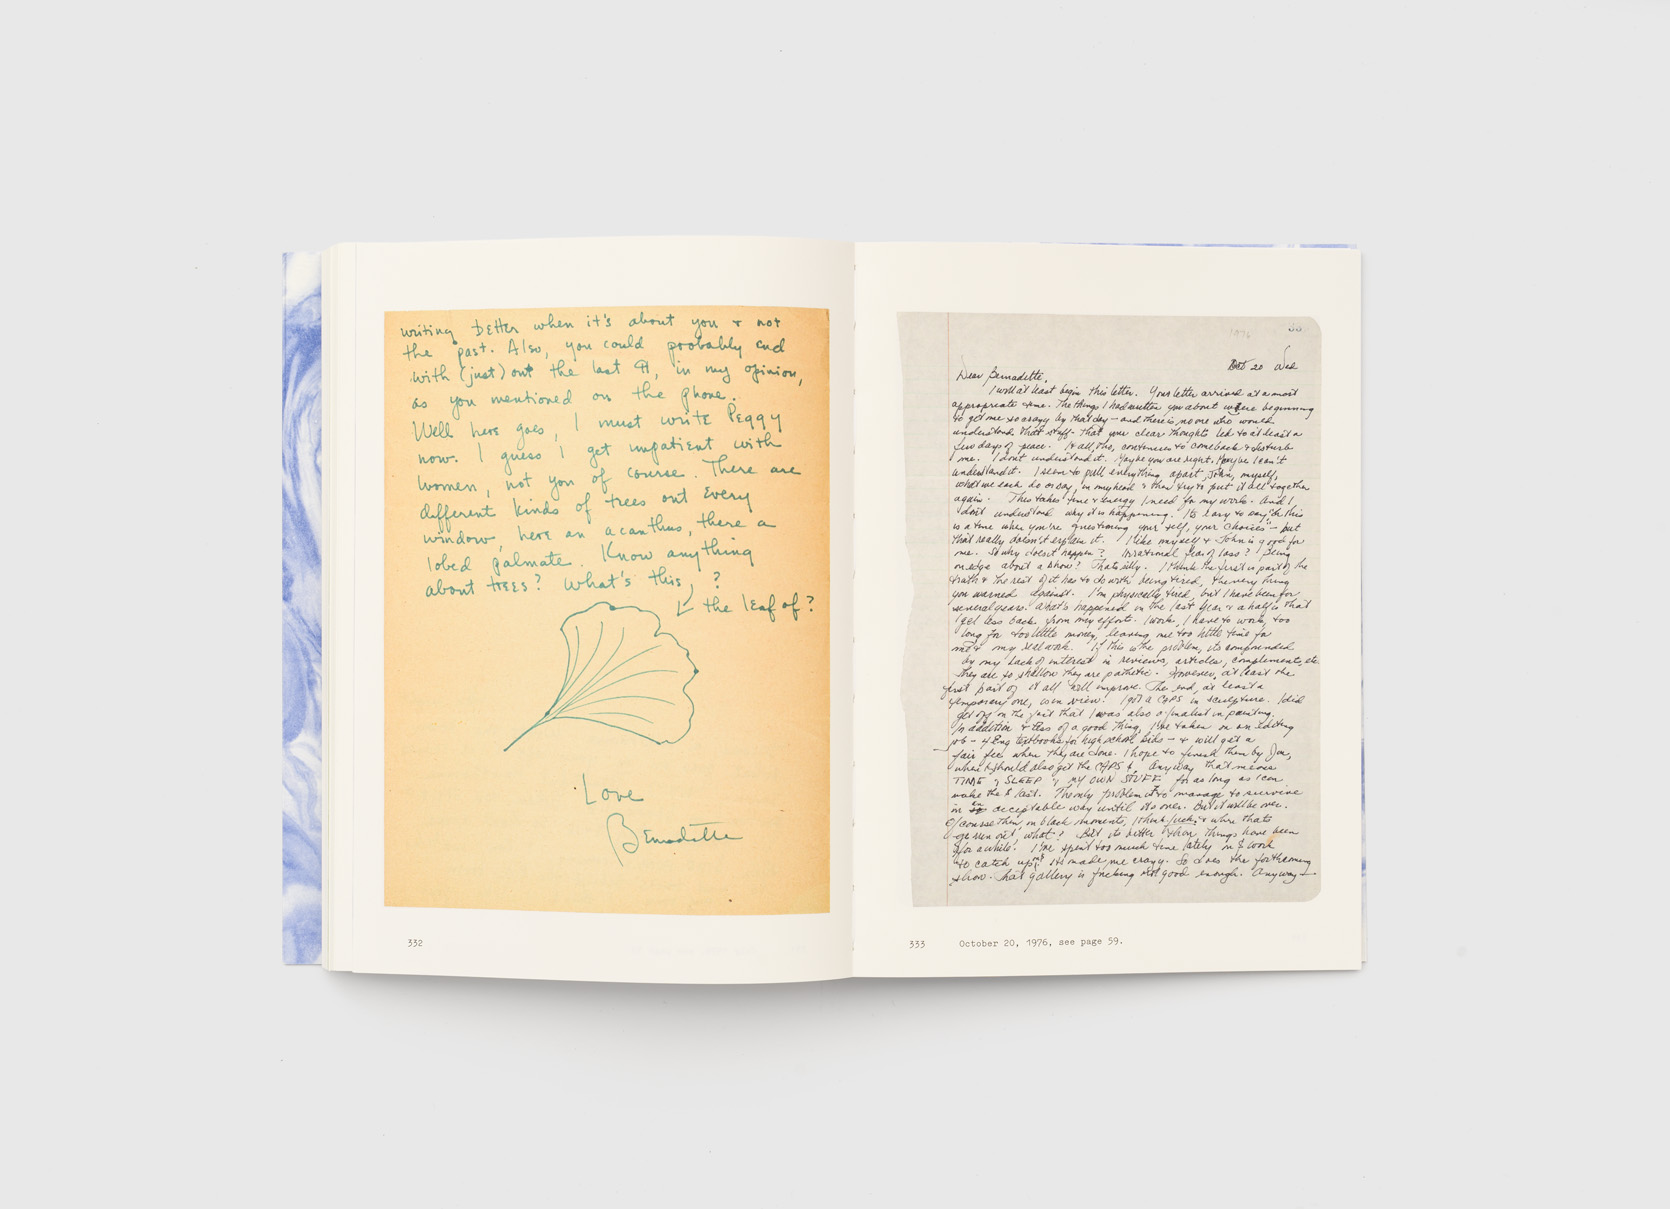 writing better when it's about you + not
the past. Also, you could probably end
with (just) out the last ¶, in my opinion,
as you mentioned on the phone.
Well here goes, I must write Peggy
now. I guess I get impatient with
women, not you of course. There are
different kinds of trees out every
window, here an acanthus, there a
lobed palmate. Know anything
about trees? What's this, ?
the leaf of?
Love
Bernadette
332
1976
Oct 20 Wed
Dear Bernadette,
I will at least begin this letter. Your letter arrived at a most
appropriate time. The things I had written you about were beginning
to get me so crazy by that day – and there is no one who would
understand that stuff – that your clear thoughts led to at least a
few days of peace. It all, tho, continues to come back & disturb
me. I don't understand it. Maybe you are right. Maybe I can't
understand it. I seem to pull everything apart, John, myself,
what we each do or say, in my head & then try to put it all together
again. This takes time & energy I need for my work. And I
don't understand why it is happening. It's easy to say "Oh this
is a time when you're questioning your self, your choices" – but
that really doesn't explain it. I like myself & John is good for
me. So why does it happen? Irrational fear of loss? Being
on edge about a show? That's silly. I think the first is part of the
truth & the rest of it has to do with being tired, the very thing
you warned against. I'm physically tired, but I have been for
several years. What's happened in the last year & a half is that
I get less back from my efforts. I work, I have to work, too
long for too little money, leaving me too little time for
me & my real work. If this is the problem, its compounded
by my lack of interest in reviews, articles, complements, etc.
They are so shallow they are pathetic. However, at least the
first part of it all will improve. The end, at least a
temporary one, is in view. I got a CAPS in sculpture. I did
get off on the fact that I was also a finalist in painting.
In addition & less of a good thing, I've taken on an editing
job – 4 Eng textbooks for high school kids – & will get a
fair fee when they are done. I hope to finish them by Jan,
when I should also get the CAPS $. Anyway that means
TIME & SLEEP & MY OWN STUFF for as long as I can
make the $ last. The only problem is to manage to survive
in an acceptable way until it's over. But it will be over.
Of course then, in black moments, I think fuck, & when that's
run out, what? But its better than things have been
for a while. I've spent too much time lately in $ work
to catch up, its made me crazy. So does the forthcoming
show. That gallery is fucking not good enough. Anyway –
333 October 20, 1976, see page 59.